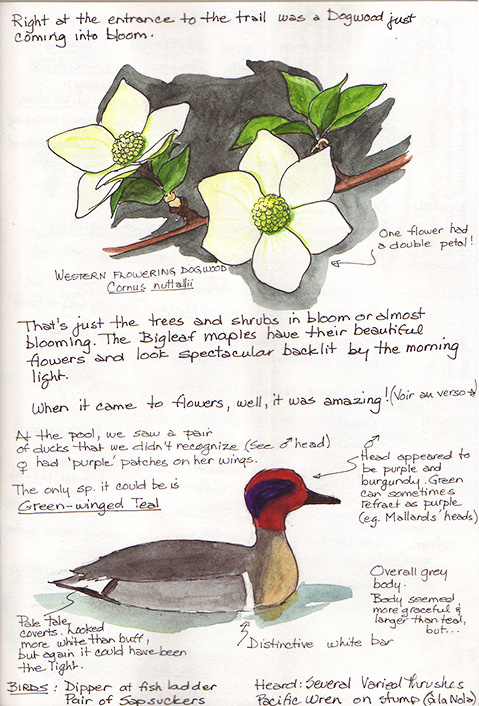 Right at the entrance to the trail was a Dogwood just
coming into bloom.
One flower had
a double petal!
WESTERN FLOWERING DOGWOOD
Cornus nuttallii
That's just the trees and shrubs in bloom or almost
blooming. The Bigleaf maples have their beautiful
flowers and look spectacular backlit by the morning
light.
When it came to flowers, well, it was amazing! (Voir au verso→)
At the pool, we saw a pair
of ducks that we didn't recognize (see ♂ head)
♀ had 'purple' patches on her wings.
The only sp. it could be is
Green-winged Teal
♂
Head appeared to
be purple and
burgundy. Green
can sometimes
refract as purple
(eg. Mallards' heads)
Overall grey
body.
Body seemed
more graceful &
larger than teal,
but...
Pale Tale
coverts. Looked
more white than buff,
but again it could have been
the light.
Distinctive white bar
BIRDS: Dipper at fish ladder
Pair of Sapsuckers
Heard: Several Varied Thrushes
Pacific Wren on stump (à la Nola)